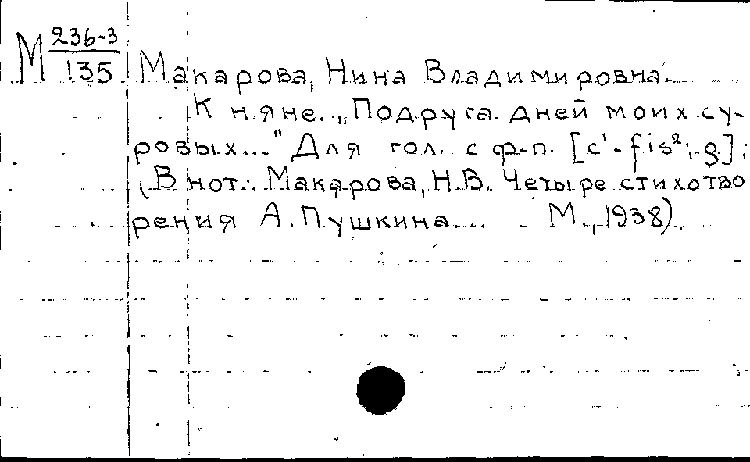 М 236-3
135 Макарова, Нина Владимировна.
К няне. „Подруга дней моих су-
ровых..." Для гол. с ф-п. [c¹-fis²; g];
(В нот.: Макарова, Н.В. Четыре стихотво
рения А. Пушкина.... М., 1938).